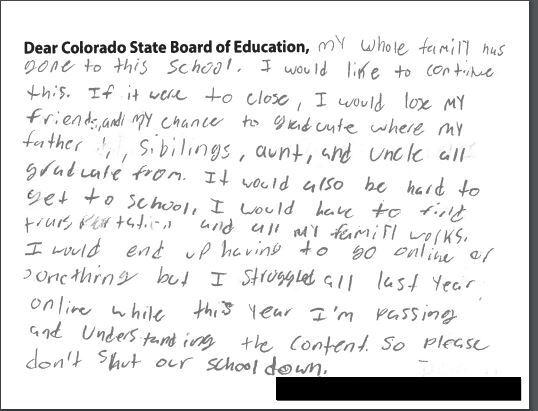 Dear Colorado State Board of Education, my whole family has
gone to this school. I would like to continue
this. If it were to close, I would lose my
friends, and my chance to graduate where my
father, sibilings, aunt, and uncle all
graduate from. It would also be hard to
get to school, I would have to find
transportation and all my family works.
I would end up having to go online or
something but I struggled all last year
online while this year I'm passing
and understanding the content. So please
don't shut our school down.